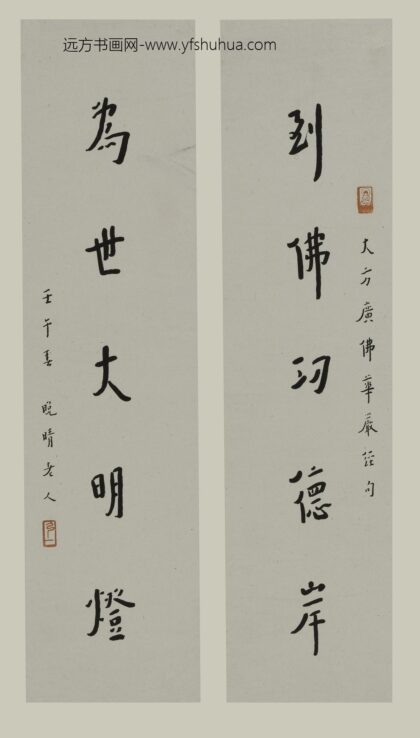 远方书画网-www.yfshuhua.com
大方廣佛華嚴經句
到佛功德岸
為世大明燈
壬午春 晚晴老人